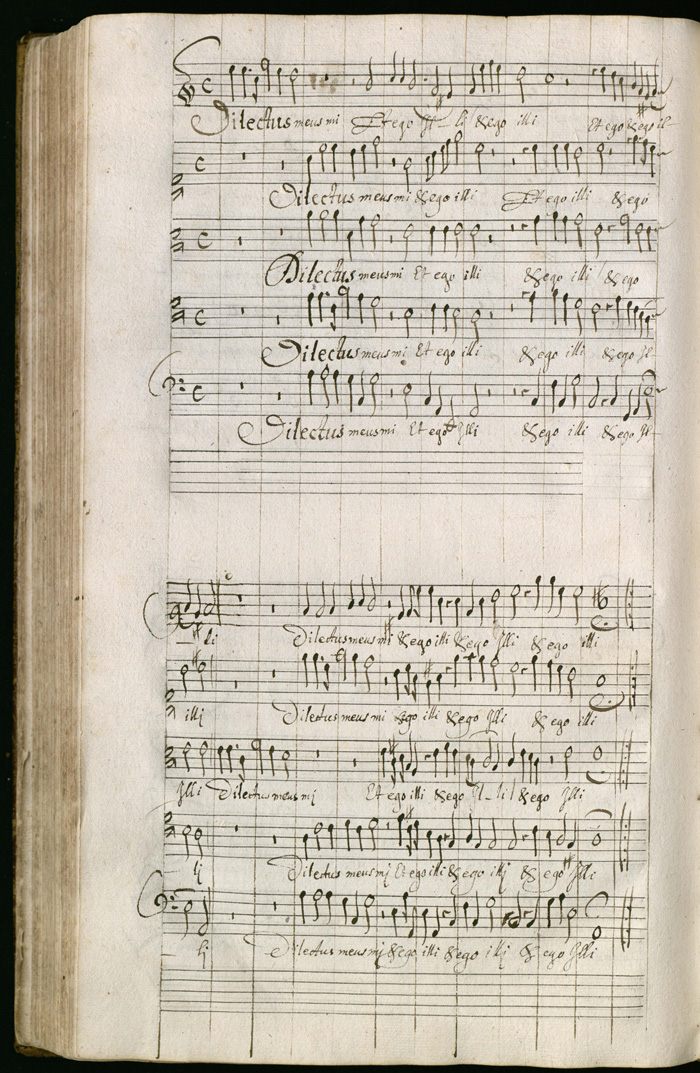 Dilectus meus mi Et ego Il - li & ego illi Et ego & ego il-
Dilectus meus mi & ego illi Et ego illi & ego
Dilectus meus mi Et ego illi & ego illi & ego
Dilectus meus mi Et ego illi & ego illi & ego Il-
Dilectus meus mi Et ego Illi & ego illi & ego Il-
- li Dilectus meus mi & ego illi & ego Illi & ego illi
illj Dilectus meus mi & ego illi & ego Illi & ego illi
Illi Dilectus meus mj Et ego illi & ego Il - li & ego Illi
- lj Dilectus meus mj Et ego illi & ego illj & ego Illi
- lj Dilectus meus mj & ego illi & ego illj & ego Illi